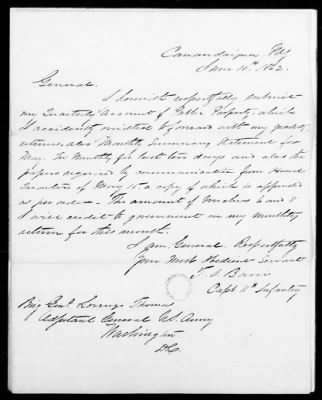 Canandaigua N.Y.
June 10th 1862.
General.
I herewith respectfully submit
my Quarterly Account of Public Property, which
I accidently omitted to forward with my quarterly
returns, also Monthly Summary Statement for
May. Tri Monthly for last ten days and also the
papers required by communication from Head
Quarters of May 15th a copy of which is appended
as per order. The amount of vouchers 6 and 8
I will credit to government on my monthly
return for this month.
I am, General, Respectfully
Your Most Obedient Servant
Capt 11th Infantry
Brig Genl Lorenzo Thomas
Adjutant General U.S. Army
Washington
D.C.